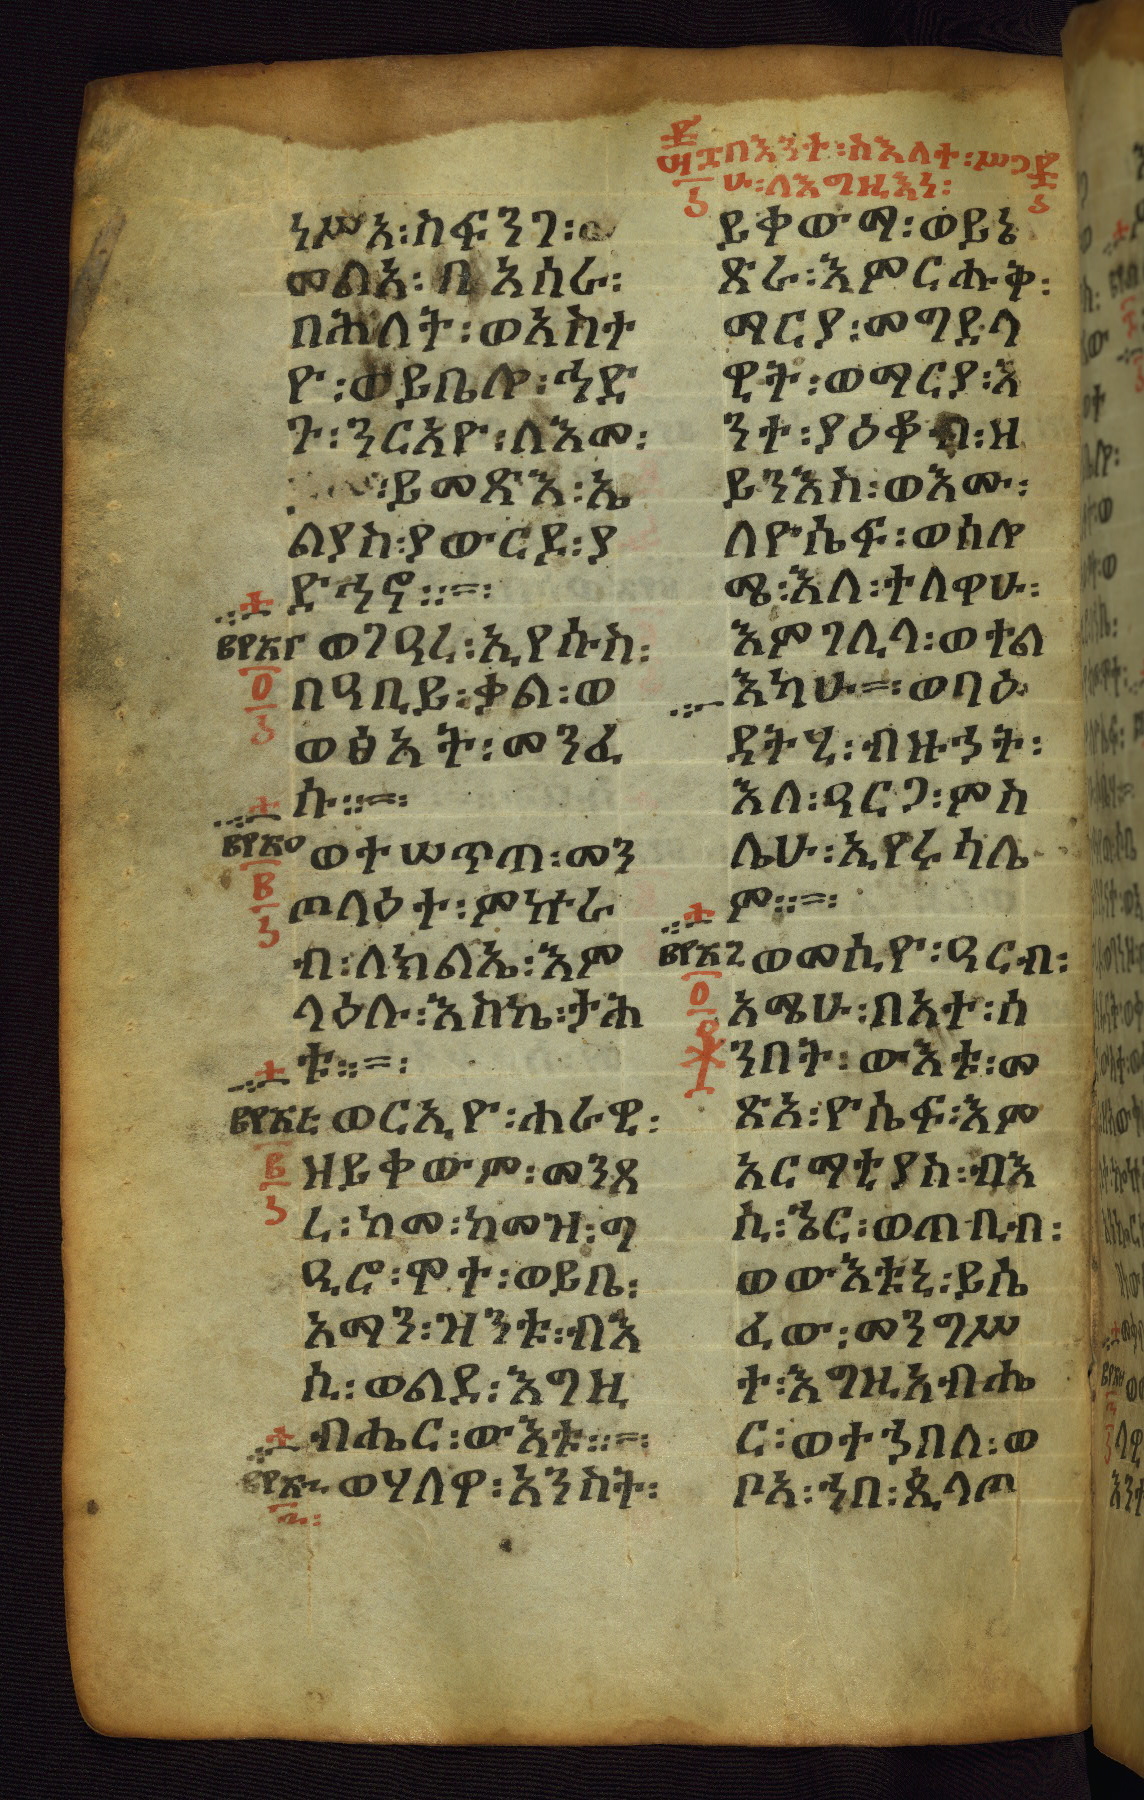 በእንተ፡ስእለተ፡ሥጋ
ሁ፡ለእግዚእነ፡
ነሥአ፡ስፍንገ፡ወ
መልአ፡በ አሰራ፡
በሕለት፡ወአስተ
ዮ፡ወይቤሎ፡ኅድ
ጉ፡ንርአዮ፡ለእመ፡
፡ይመጽእ፡ኤ
ልያስ፡ያውርዶ፡ያ
ድኅኖ።=፡
ወገዓረ፡ኢየሱስ፡
በዓቢይ፡ቃል፡ወ
ወፅአት፡መንፈ
ሱ።=፡
ወተሠጥጠ፡መን
ጦላዕተ፡ምኵራ
ብ፡ለክልኤ፡እም
ላዕሉ፡እስከ፡ታሕ
ቱ።=፡
ወርእዮ፡ሐራዊ፡
ዘይቀውም፡መንጸ
ረ፡ከመ፡ከመዝ፡ግ
ዒሮ፡ሞተ፡ወይቤ፡
አማን፡ዝንቱ፡ብእ
ሲ፡ወልደ፡እግዚ
ብሔር፡ውእቱ።=፡
ወሃለዋ፡አንስት፡
ይቀውማ፡ወይኔ
ጽራ፡እምርሑቅ፡
ማርያ፡መግደላ
ዊት፡ወማርያ፡እ
ንተ፡ያዕቆብ፡ዘ
ይንእስ፡ወእሙ፡
ለዮሴፍ፡ወሰሎ
ሜ፡እለ፡ተለዋሁ፡
እምገሊላ፡ወተል
እካሁ=፡ወባዕ
ዳትሂ፡ብዙኃት፡
እለ፡ዓርጋ፡ምስ
ሌሁ፡ኢየሩሳሌ
ም።=፡
ወመሲዮ፡ዓርብ፡
አሜሁ፡በአተ፡ሰ
ንበት፡ውእቱ፡መ
ጽአ፡ዮሴፍ፡እም
አርማቲያስ፡ብእ
ሲ፡ኄር፡ወጠቢብ፡
ወውእቱኒ፡ይሴ
ፈው፡መንግሥ
ተ፡እግዚአብሔ
ር፡ወተኃበለ፡ወ
ቦአ፡ኀበ፡ጲላጦ